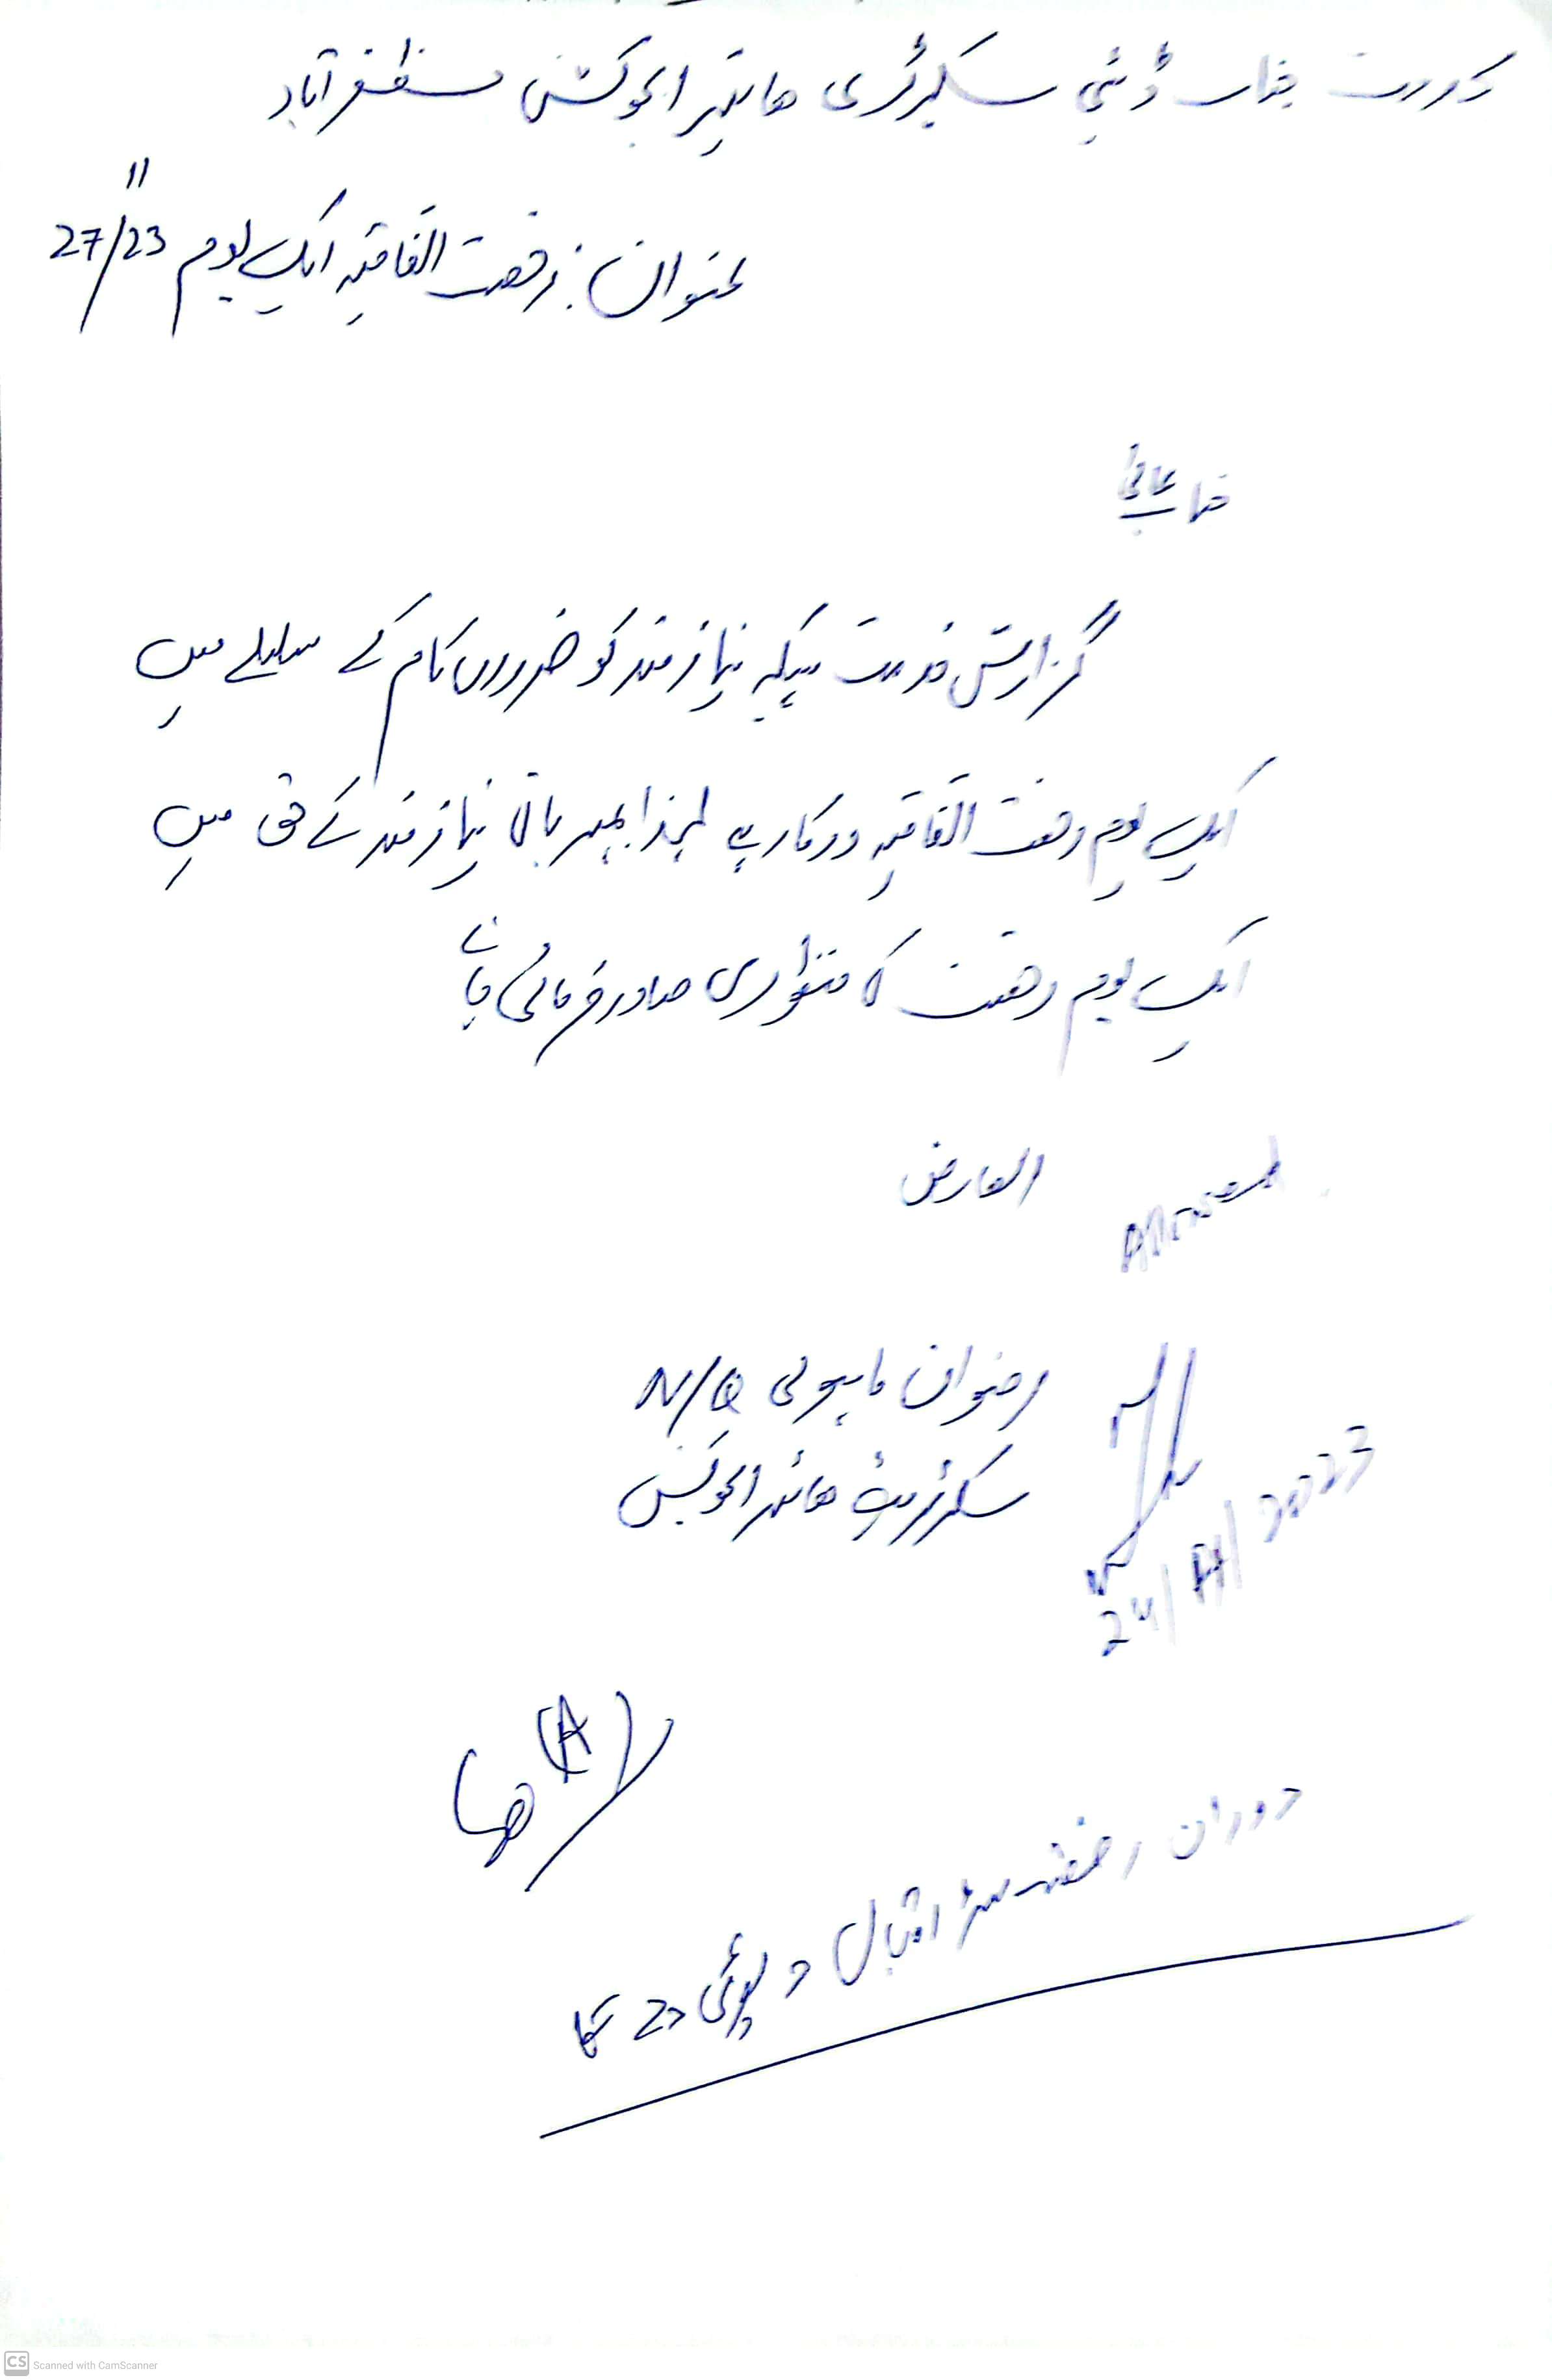 بخدمت جناب ڈپٹی سیکرٹری ہائیر ایجوکیشن مظفرآباد
عنوان: رخصت اتفاقیہ ایک یوم 27/11/23
جناب عالی
گزارش خدمت ہیکہ نیازمند کو ضروری کام کے سلسلے میں
ایک یوم رخصت اتفاقیہ درکار ہے لہذا بمہربانی نیازمند کے حق میں
ایک یوم رخصت کا منظوری صادر فرمائی جائے
العارض
رضوان N/Q
سکرٹریٹ ہائیر ایجوکیشن
24/11/2023
(A)
دوران رخصت اقبال ڈیوٹی دے گا
CS Scanned with CamScanner